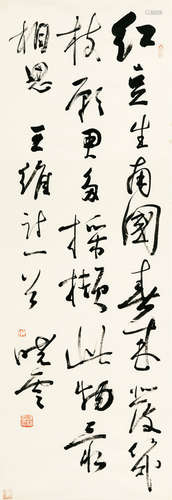 红豆生南国春来发几
枝愿君多采撷此物最
相思 王维诗一首
晓云